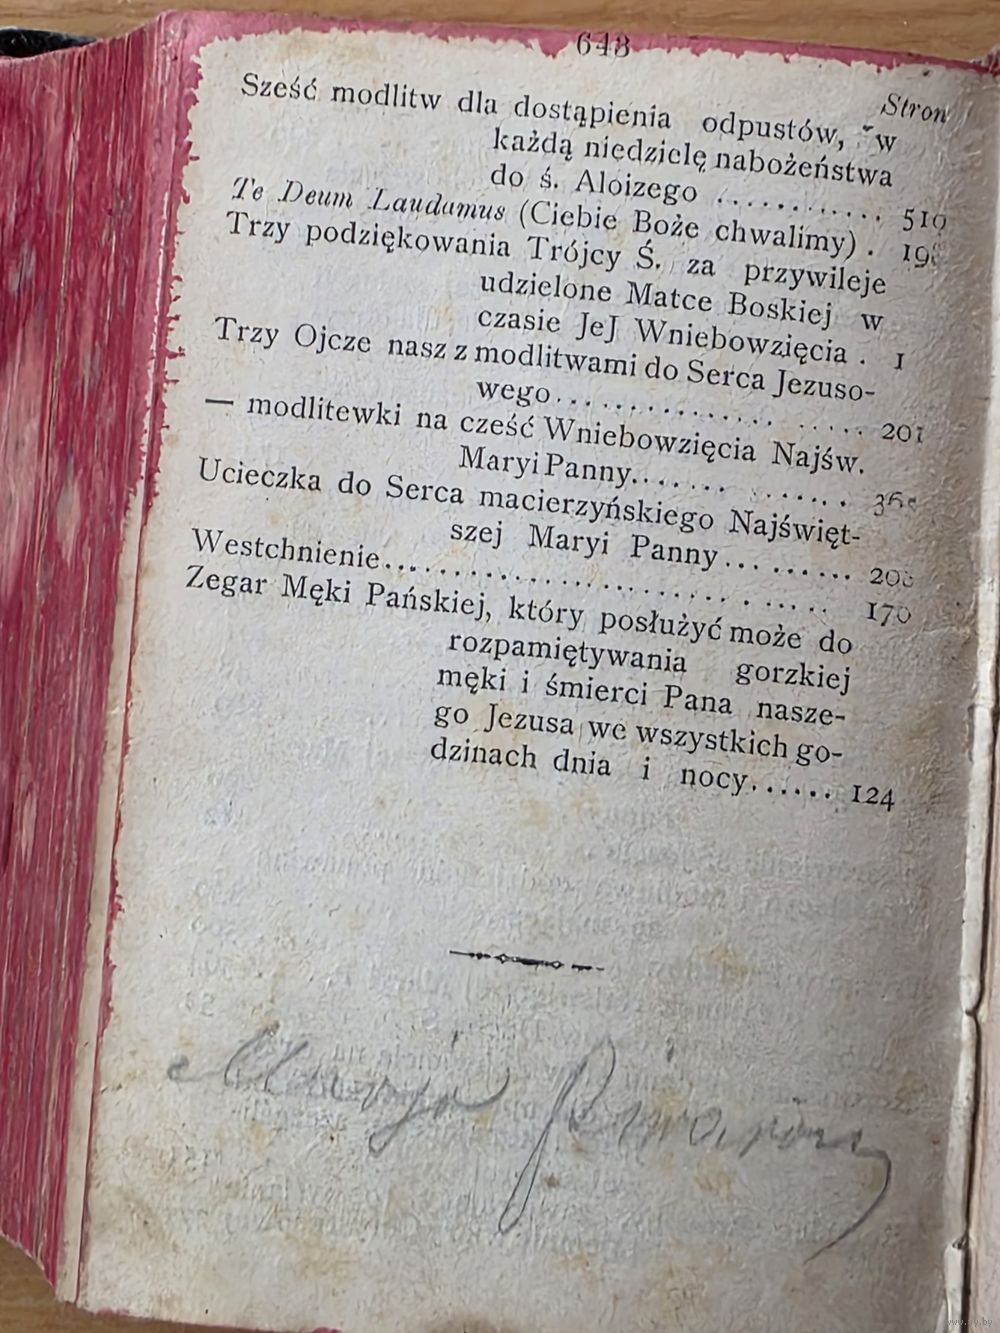 648
Stron
Sześć modlitw dla dostąpienia odpustów, w
każdą niedzielę nabożeństwa
do ś. Aloizego ............ 519
Te Deum Laudamus (Ciebie Boże chwalimy) . 19
Trzy podziękowania Trójcy Ś. za przywileje
udzielone Matce Boskiej w
czasie JeJ Wniebowzięcia . 1
Trzy Ojcze nasz z modlitwami do Serca Jezuso-
wego.................... 201
— modlitewki na cześć Wniebowzięcia Najśw.
Maryi Panny.............. 36
Ucieczka do Serca macierzyńskiego Najświęt-
szej Maryi Panny......... 20
Westchnienie......................... 170
Zegar Męki Pańskiej, który posłużyć może do
rozpamiętywania gorzkiej
męki i śmierci Pana nasze-
go Jezusa we wszystkich go-
dzinach dnia i nocy...... 124
Marya